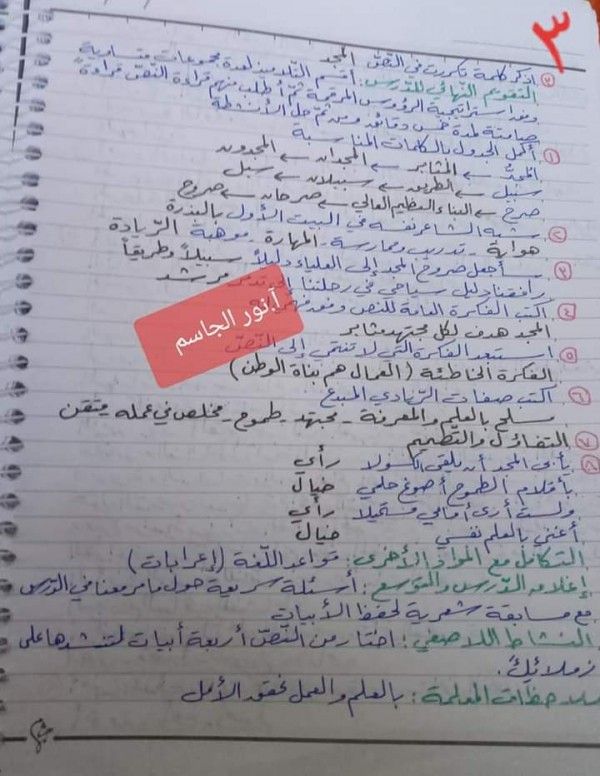 ٣
② اذكر كلمة تكررت في النّصّ المجد
التقويم النهائي للدّرس: أقسّم التلاميذ لعدة مجموعات متساوية
وفق استراتيجية الرؤوس المرقمة ثمّ أطلب منهم قراءة النّصّ قراءةً
صامتة لمدة خمس دقائق ومن ثم حل الأنشطة
① أكمل الجدول بالكلمات المناسبة
المجدّ ← المثابر ← المجدان ← المجدون
سبيل ← الطريق ← سبيلان ← سبل
صرح ← البناء العظيم العالي ← صرحان ← صروح
② شبه الشاعر نفسه في البيت الأول بالبذرة
هواية - تدريب وممارسة - المهارة - موهبة الرّيادة
③ سأجعل صروح المجد إلى العلياء دليلاً سبيلاً وطريقاً
رافقنا دليل سياحي في رحلتنا إلى مرشد
④ اكتب الفكرة العامة للنص وفق
المجد هدف لكل مجتهد مثابر
⑤ استبعد الفكرة التي لا تنتمي إلى النّصّ
الفكرة الخاطئة (العمال هم بناة الوطن)
⑥ اكتب صفات الرّيادي المبدع
مسلح بالعلم والمعرفة - مجتهد - طموح - مخلص في عمله متقن
⑦ التفاؤل والتصميم
⑧ يأبى المجد أن يلقى الكسولا رأي
بأقلام الطموح أصوغ حلمي خيال
ولست أرى أمامي مستحيلا رأي
أغني بالعلم نفسي خيال
التكامل مع المواد الأخرى: قواعد اللّغة (إعرابات)
إغلاق الدّرس والتوسع: أسئلة سريعة حول ما مر معنا في الدّرس
مع مسابقة شعرية لحفظ الأبيات
النشاط اللاصفي: اختار من النّصّ أربعة أبيات لتنشدها على
زملائك.
ملاحظات المعلمة: بالعلم والعمل نحقق الأمل
آ.نور الجاسم